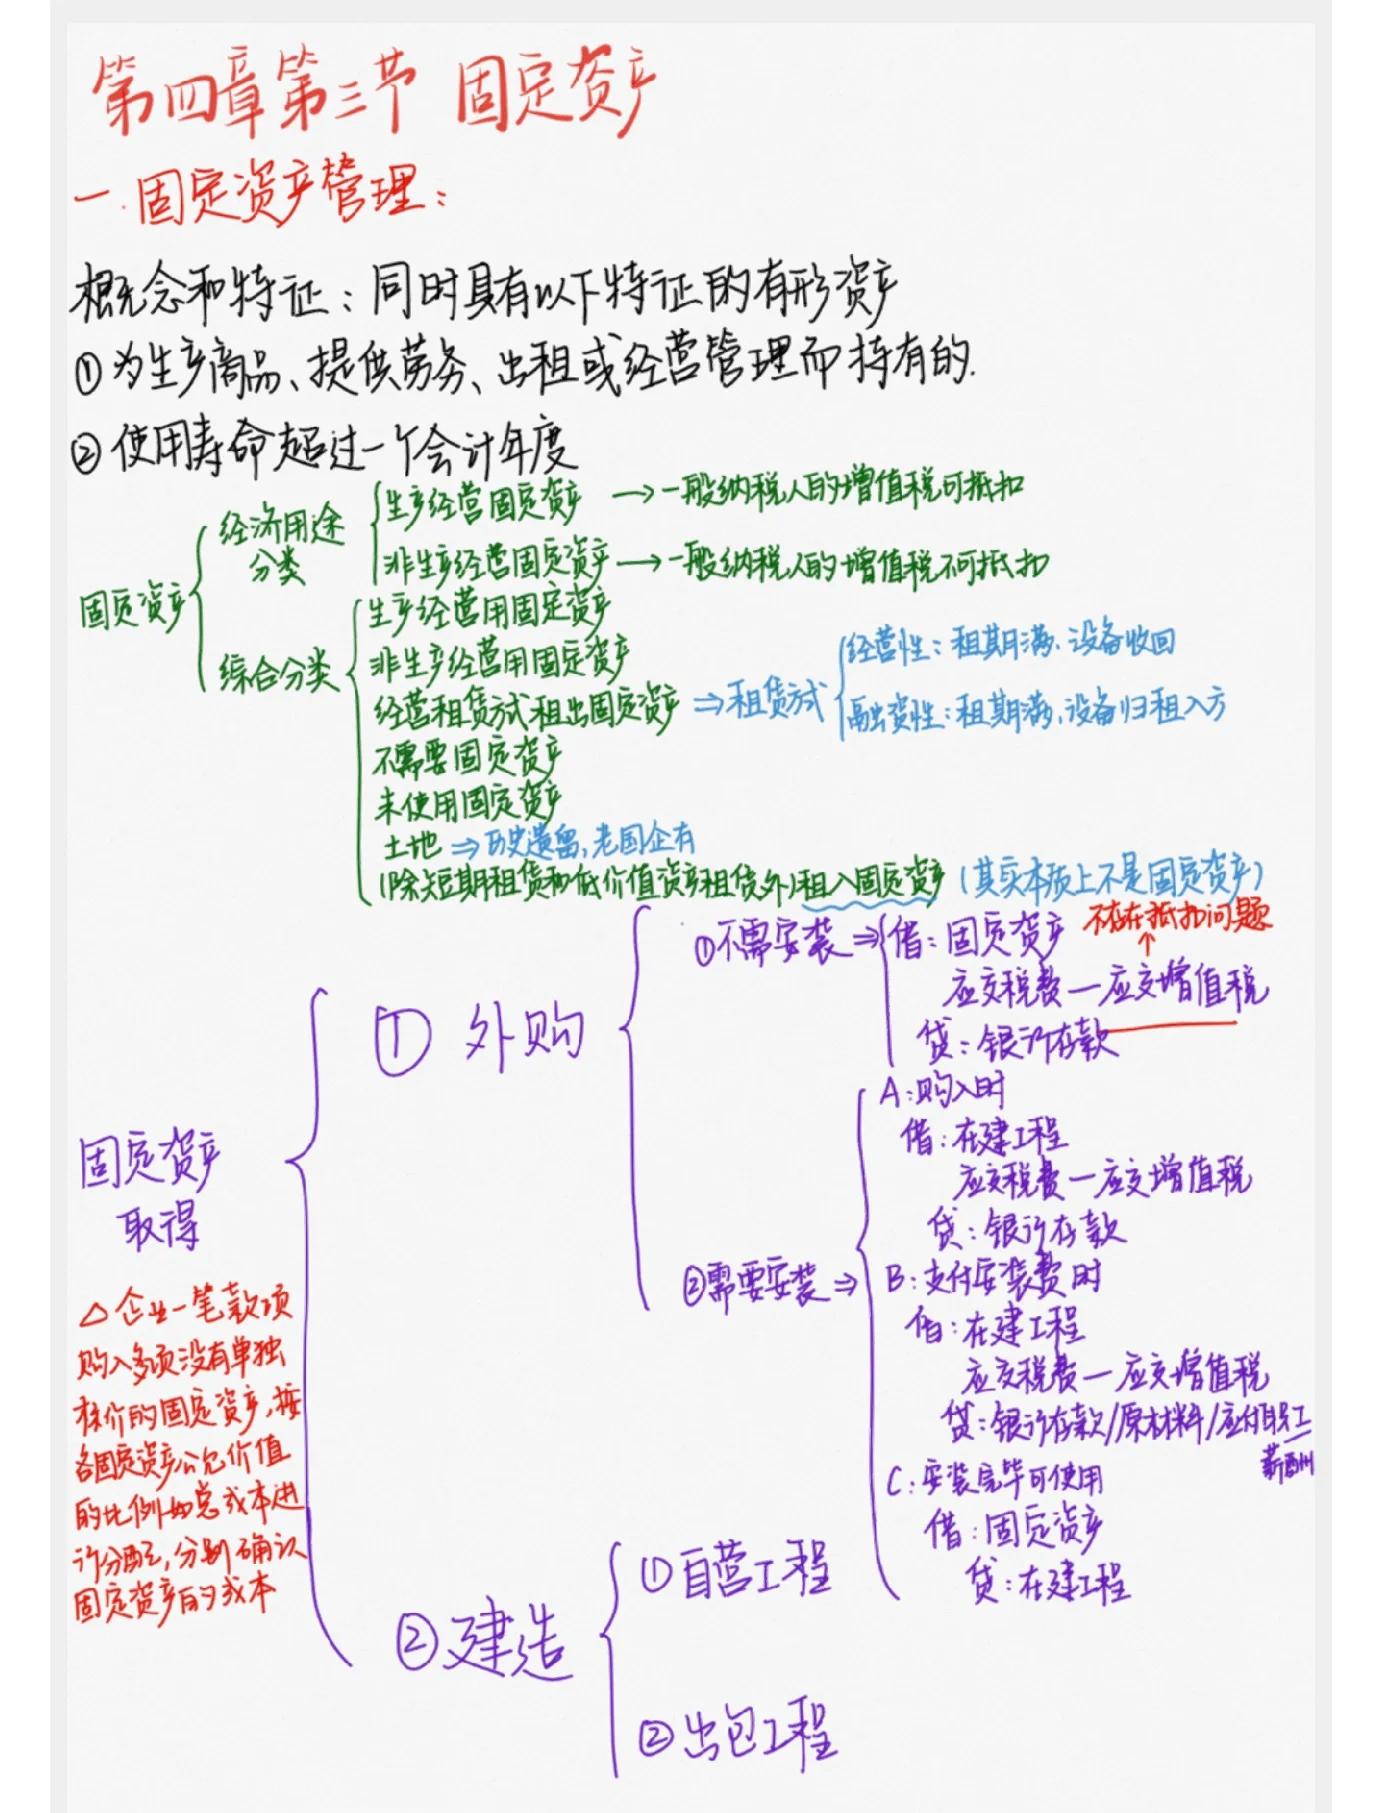 第四章第三节 固定资产
一.固定资产管理：
概念和特征：同时具有以下特征的有形资产
①为生产商品、提供劳务、出租或经营管理而持有的.
②使用寿命超过一个会计年度
固定资产
经济用途
分类
生产经营固定资产 →一般纳税人的增值税可抵扣
非生产经营固定资产→一般纳税人的增值税不可抵扣
综合分类
生产经营用固定资产
非生产经营用固定资产
经营租赁方式租出固定资产 ⇒租赁方式
经营性：租期满、设备收回
融资性：租期满、设备归租入方
不需要固定资产
未使用固定资产
土地 ⇒历史遗留,老国企有
(除短期租赁和低价值资产租赁外)租入固定资产 (其实本质上不是固定资产)
固定资产
取得
①外购
①不需安装⇒
借：固定资产
不存在抵扣问题
↑
应交税费—应交增值税
贷：银行存款
②需要安装⇒
A：购入时
借：在建工程
应交税费—应交增值税
贷：银行存款
B：支付安装费时
借：在建工程
应交税费—应交增值税
贷：银行存款/原材料/应付职工
薪酬
C：安装完毕可使用
借：固定资产
贷：在建工程
②建造
①自营工程
②出包工程
△企业一笔款项
购入多项没有单独
标价的固定资产,按
各固定资产公允价值
的比例如总成本进
行分配,分别确认
固定资产的成本